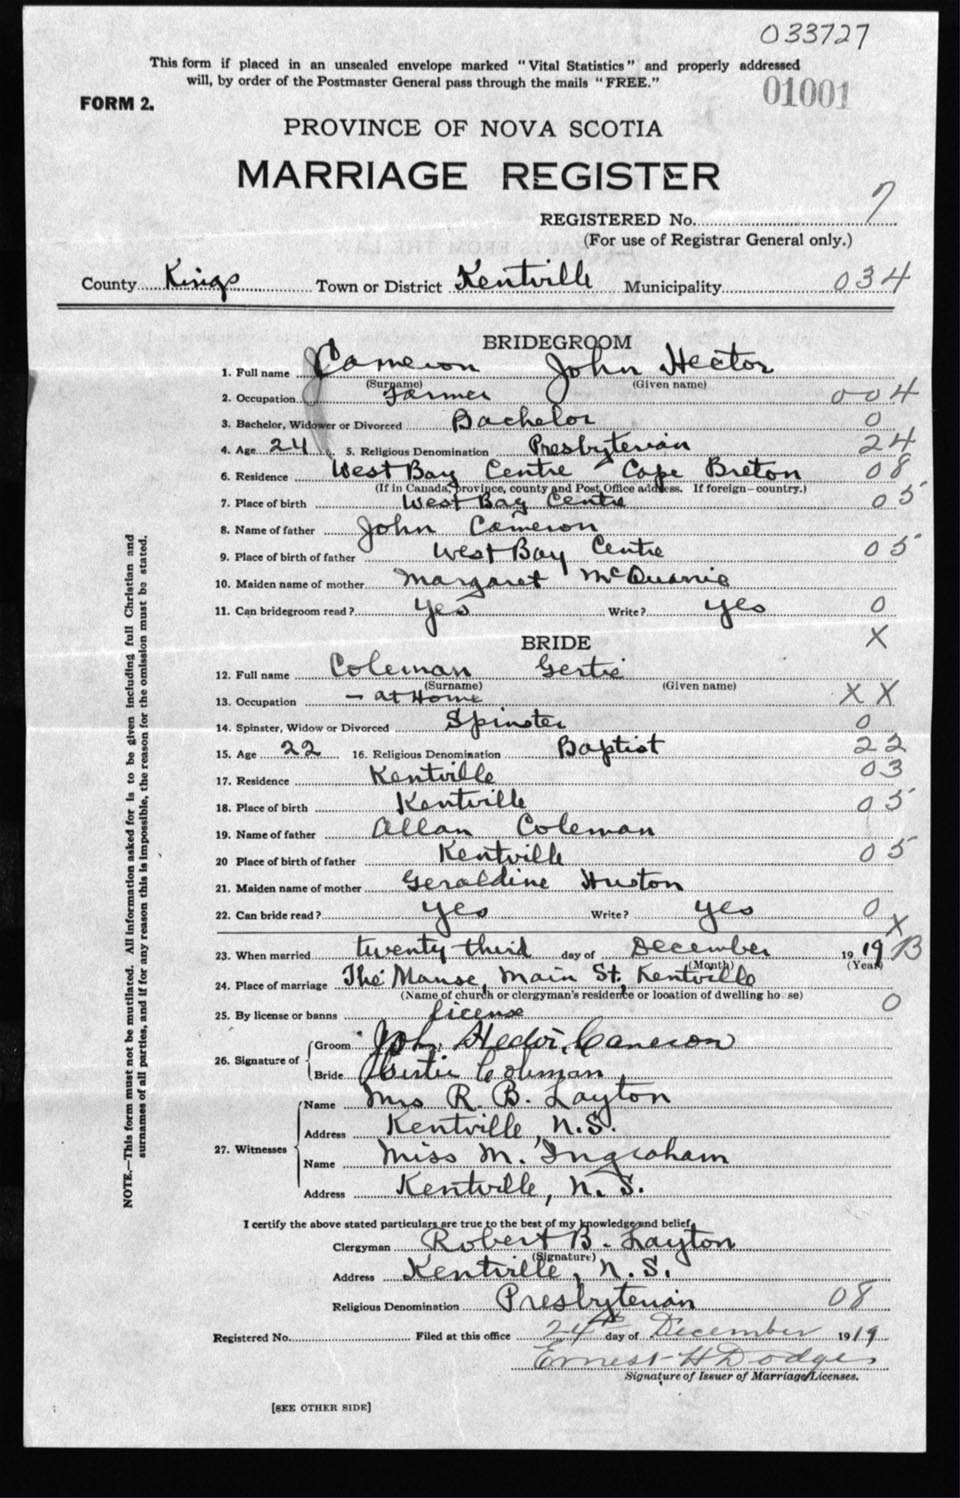 033727
This form if placed in an unsealed envelope marked "Vital Statistics" and properly addressed
will, by order of the Postmaster General pass through the mails "FREE."
01001
FORM 2.
PROVINCE OF NOVA SCOTIA
MARRIAGE REGISTER
REGISTERED No. 7
(For use of Registrar General only.)
County Kings Town or District Kentville Municipality 034
BRIDEGROOM
1. Full name Cameron John Hector
(Surname) (Given name)
2. Occupation Farmer 004
3. Bachelor, Widower or Divorced Bachelor 0
4. Age 24 5. Religious Denomination Presbyterian 24
6. Residence West Bay Centre Cape Breton 08
(If in Canada, province, county and Post Office address. If foreign—country.)
7. Place of birth West Bay Centre 05
8. Name of father John Cameron
9. Place of birth of father West Bay Centre 05
10. Maiden name of mother Margaret McQuanie
11. Can bridegroom read? yes Write? yes 0
BRIDE X
12. Full name Coleman Gertie
(Surname) (Given name)
13. Occupation — at Home XX
14. Spinster, Widow or Divorced Spinster 0
15. Age 22 16. Religious Denomination Baptist 22
17. Residence Kentville 03
18. Place of birth Kentville 05
19. Name of father Allan Coleman
20 Place of birth of father Kentville 05
21. Maiden name of mother Geraldine Huston
22. Can bride read? yes Write? yes 0
X
23. When married twenty third day of December 1919 B
(Month) (Year)
24. Place of marriage The Manse, Main St, Kentville
(Name of church or clergyman's residence or location of dwelling house)
25. By license or banns license 0
26. Signature of Groom John Hector Cameron
Bride Gertie Coleman
27. Witnesses Name Mrs R. B. Layton
Address Kentville, N.S.
Name Miss M. Ingraham
Address Kentville, N. S.
I certify the above stated particulars are true to the best of my knowledge and belief.
Clergyman Robert B. Layton
(Signature)
Address Kentville, N. S.
Religious Denomination Presbyterian 08
Registered No. Filed at this office 24th day of December 1919
Ernest H Dodge
Signature of Issuer of Marriage Licenses.
[SEE OTHER SIDE]
NOTE.—This form must not be mutilated. All information asked for is to be given including full Christian and
surnames of all parties, and if for any reason this is impossible, the reason for the omission must be stated.